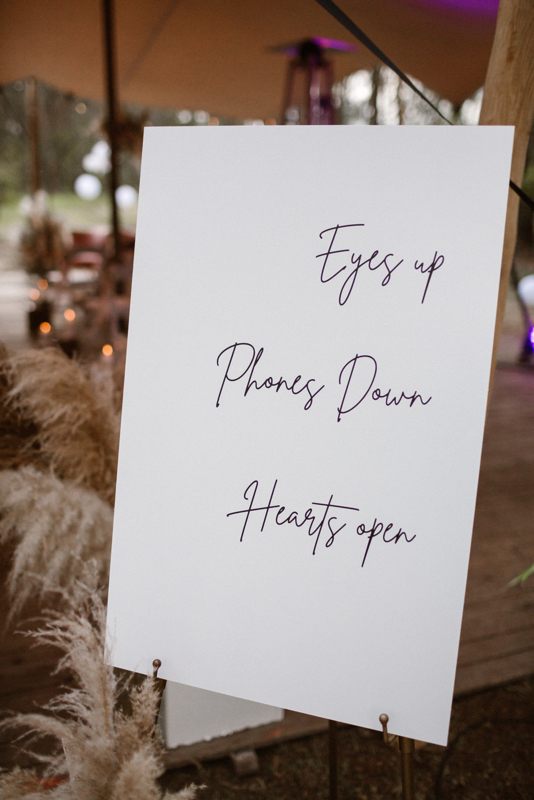 Eyes up
Phones Down
Hearts open